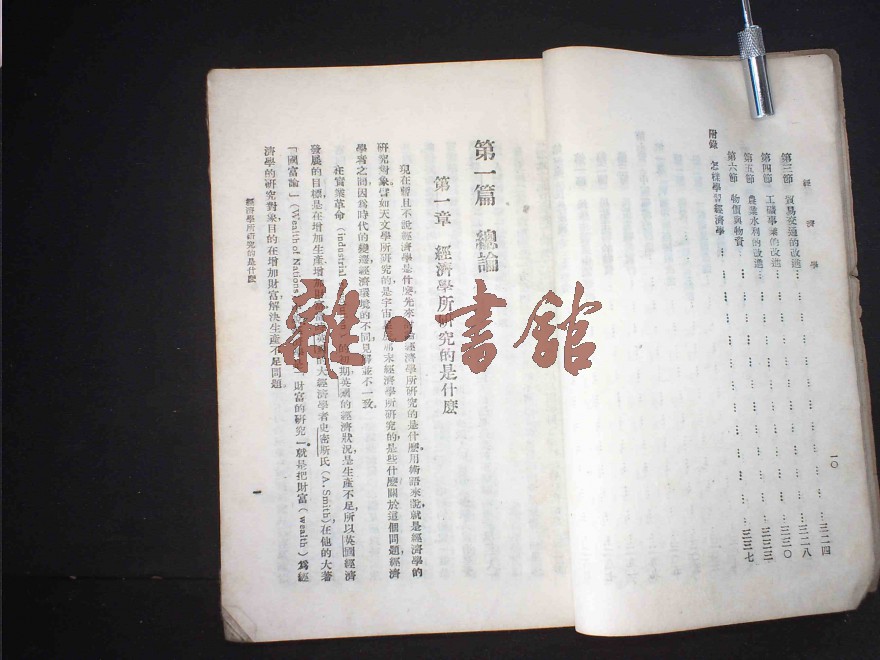 經濟學
一〇
第三節 貿易交通的改進
三二四
第四節 工礦事業的改進
三二八
第五節 農業水利的改進
三三〇
第六節 物價與物資
三三三
附錄 怎樣學習經濟學
三三七
第一篇 總論
第一章 經濟學所研究的是什麼
現在暫且不說經濟學是什麼先來 經濟學所研究的是什麼。用術語來說,就是經濟學的
研究對象。譬如天文學所研究的是宇宙 那末經濟學所研究的是些什麼關於這個問題,經濟
學者之間,因爲時代的變遷經濟環境的不同,見解並不一致。
在實業革命(industrial 的初期,英國的經濟狀況,是生產不足,所以英國經濟
發展的目標,是在增加生產增加財 的大經濟學者史密斯氏(A. Smith),在他的大著
「國富論」(Wealth of Nations 財富的研究」就是把財富(wealth)爲經
濟學的研究對象目的在增加財富,解決生產不足問題。
經濟學所研究的是什麼
一
雜·書館